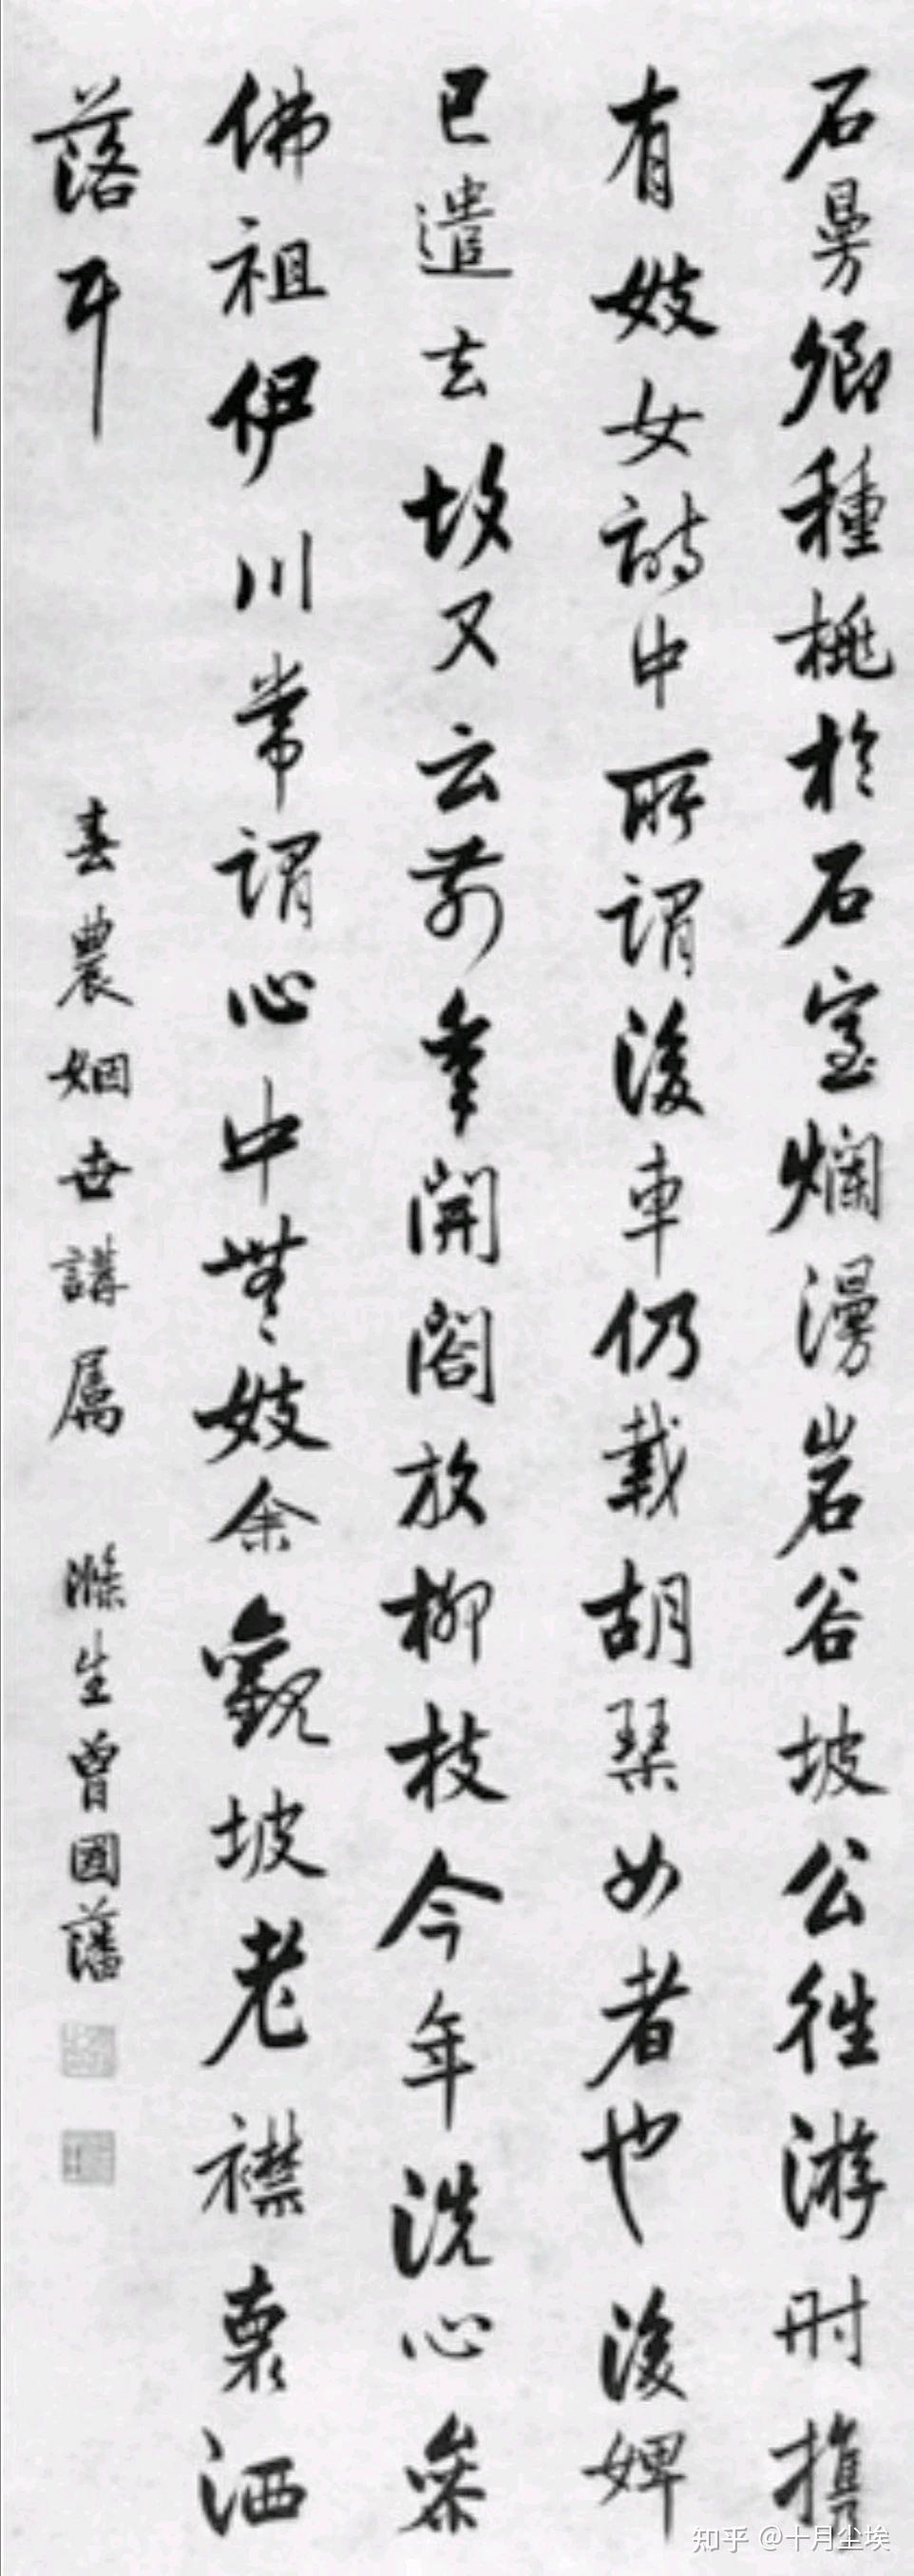 石曼卿種桃於石室爛漫岩谷坡公往游時攜
有妓女詩中所謂後車仍載胡琴女者也後婢
已遣去故又云前年開閣放柳枝今年洗心參
佛祖伊川常謂心中無妓余觀坡老襟裏洒
落耳
春農姻世講屬 滌生曾國藩
知乎 @十月尘埃